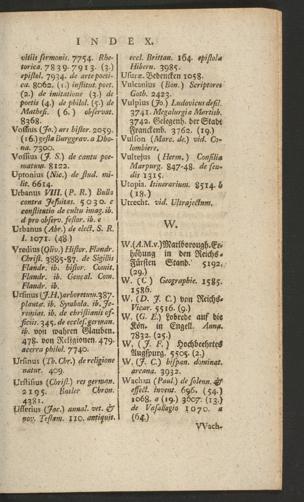 INDEX.
vitiis sermonis. 7754. Rhe-
torica. 7839. 7913. (3.)
epistol. 7934. de arte poeti-
ca. 8062. (1.) institut. poet.
(2.) de imitatione (3.) de
poetis (4.) de philol. (5.) de
Mathesi. (6.) observat.
8368.
Vossius (Jo.) ars histor. 2059.
(16.) gesta Burggrav. a Dho-
na. 7300.
Vossius (J. S.) de cantu poe-
matum. 8122.
Uptonius (Nic.) de stud. mi-
lit. 6614.
Urbanus VIII. (P. R.) Bulla
contra Jesuitas. 5030. e
constitutio de cultu imag. ib.
d pro observ. festor. ib. e
Urbanus (Abr.) de elect. S. R.
I. 1071. (48.)
Vredius (Oliv.) Histor. Flandr.
Christ. 3885-87. de Sigillis
Flandr. ib. histor. Comit.
Flandr. ib. Geneal. Com.
Flandr. ib.
Ursinus (J. H.) arboretum. 387.
plantæ. ib. Symbola. ib. Je-
remias. ib. de christianis of-
ficiis. 345. de eccles. german.
ib. von wahren Glauben.
478. von Religionen. 479.
acerra philol. 7740.
Ursinus (Th. Chr.) de religione
natur. 409.
Urstisius (Christ.) res german.
2195. Basler Chron.
4381.
Usserius (Jac.) annal. vet. &
nov. Testam. 110. antiquit.
eccl. Brittan. 164. epistolæ
Hibern. 3985.
Usuræ. Bedencken 1058.
Vulcanius (Bon.) Scriptores
Goth. 2423.
Vulpius (Jo.) Ludovicus desil.
3741. Megalurgia Martisb.
3742. Gelegenh. der Stadt
Franckenh. 3762. (19.)
Vulson (Marc. de.) vid. Co-
lombiere.
Vultejus (Herm.) Consilia
Marpurg. 847-48. de feu-
dis 1315.
Utopia. Itinerarium. 8514. b
(18.)
Utrecht. vid. Ultrajectum.
W.
W. (A. M. v.) Marlborough. Er-
höhung in den Reichs-
Fürsten Stand. 5192.
(29.)
W. (C.) Geographie. 1585.
1586.
W. (D. J. C.) von Reichs-
Vicar. 5516. (9.)
W. (G. E.) Lobrede auf die
Kön. in Engell. Anna.
7832. (25.)
W. (J. F.) Hochbeehrtes
Augspurg. 5505. (2.)
W. (J. C.) hispan. dominat.
arcana. 3932.
Wachtii (Paul.) de solenn. &
effect. invest. 696. (54.)
1068. a (19.) 3607. (13.)
de Vasallagio 1070. a
(64.)
VVach-